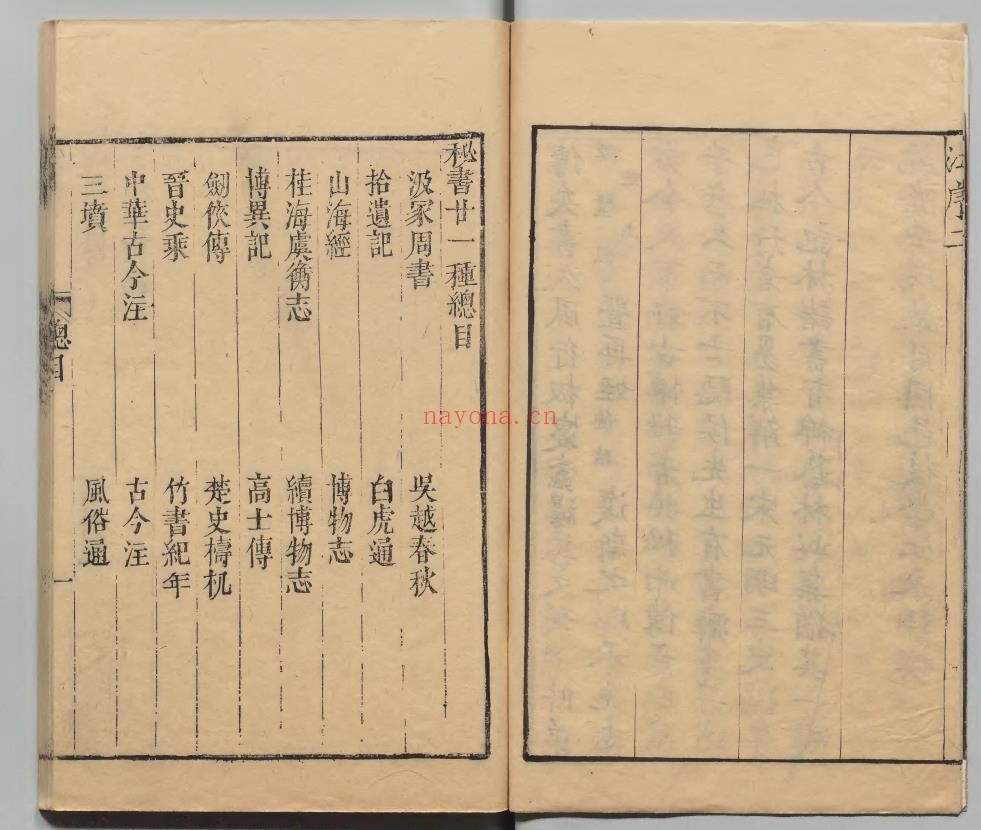 秘書廿一種總目
汲冢周書 吳越春秋
拾遺記 白虎通
山海經 博物志
桂海虞衡志 續博物志
博異記 高士傳
劒俠傳 楚史檮杌
晉史乘 竹書紀年
中華古今注 古今注
三墳 風俗通
總目 一
nayona.cn